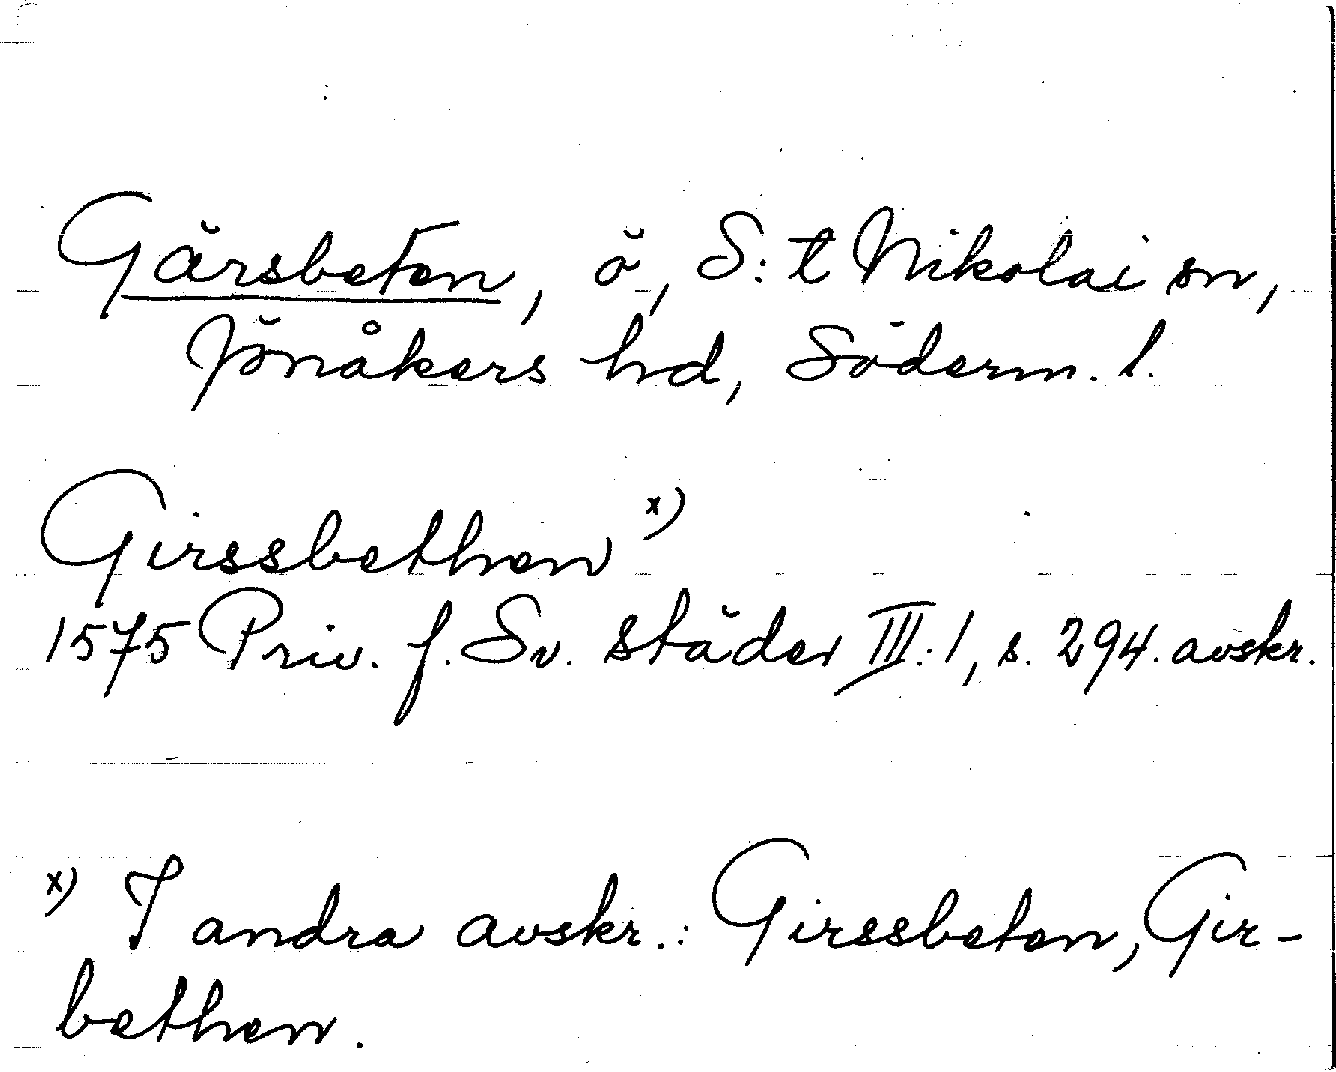 Gärsbeten, ö, S:t Nikolai sn,
Jönåkers hd, Söderm. l.
Girssbethen x)
1575 Priv. f. Sv. städer III:1, s. 294. avskr.
x) I andra avskr.: Girssbeten, Gir-
bethen.